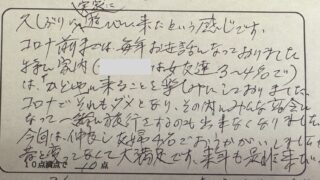 実家に
久しぶりに遊びに来たという感じです。
コロナ前までは毎年お世話になっておりました
特に家内( は女友達3〜4名で)
は、かどやに来ることを楽しみにしておりました
コロナでそれもダメとなり、その内みんな都合に
なって一緒に旅行をするのも出来なくなりました
今回は仲良し夫婦4名でおうかがいしました
昔と変ってなくて大満足です。来年も是非来たい。
10点満点で 10 点